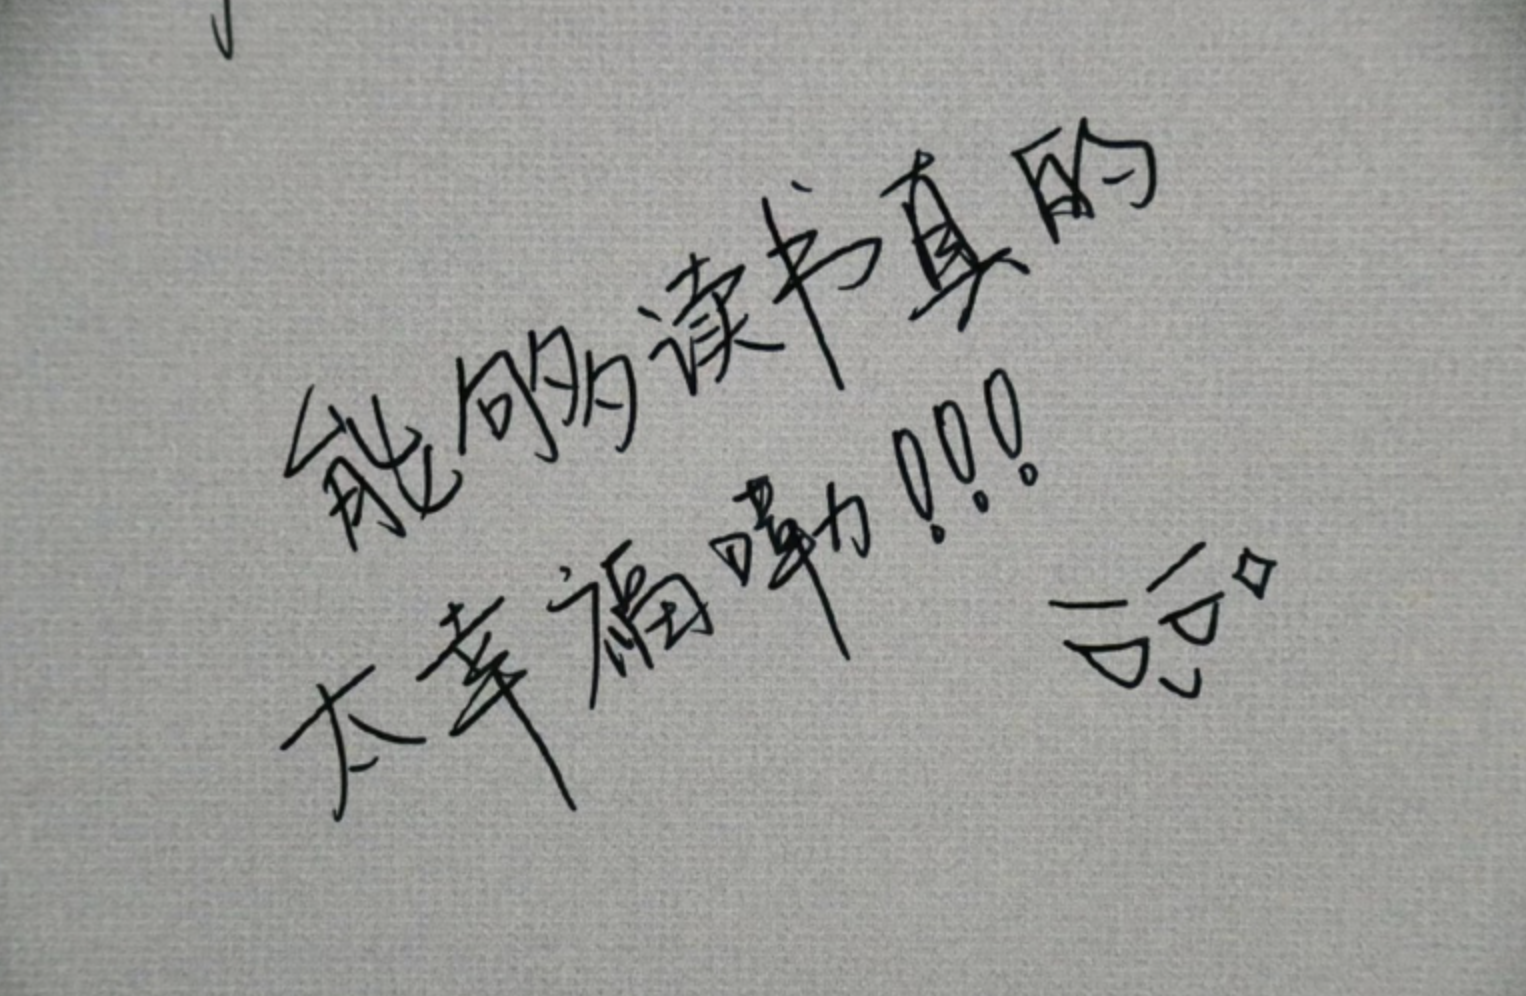 能够读书真的
太幸福嘞!!!